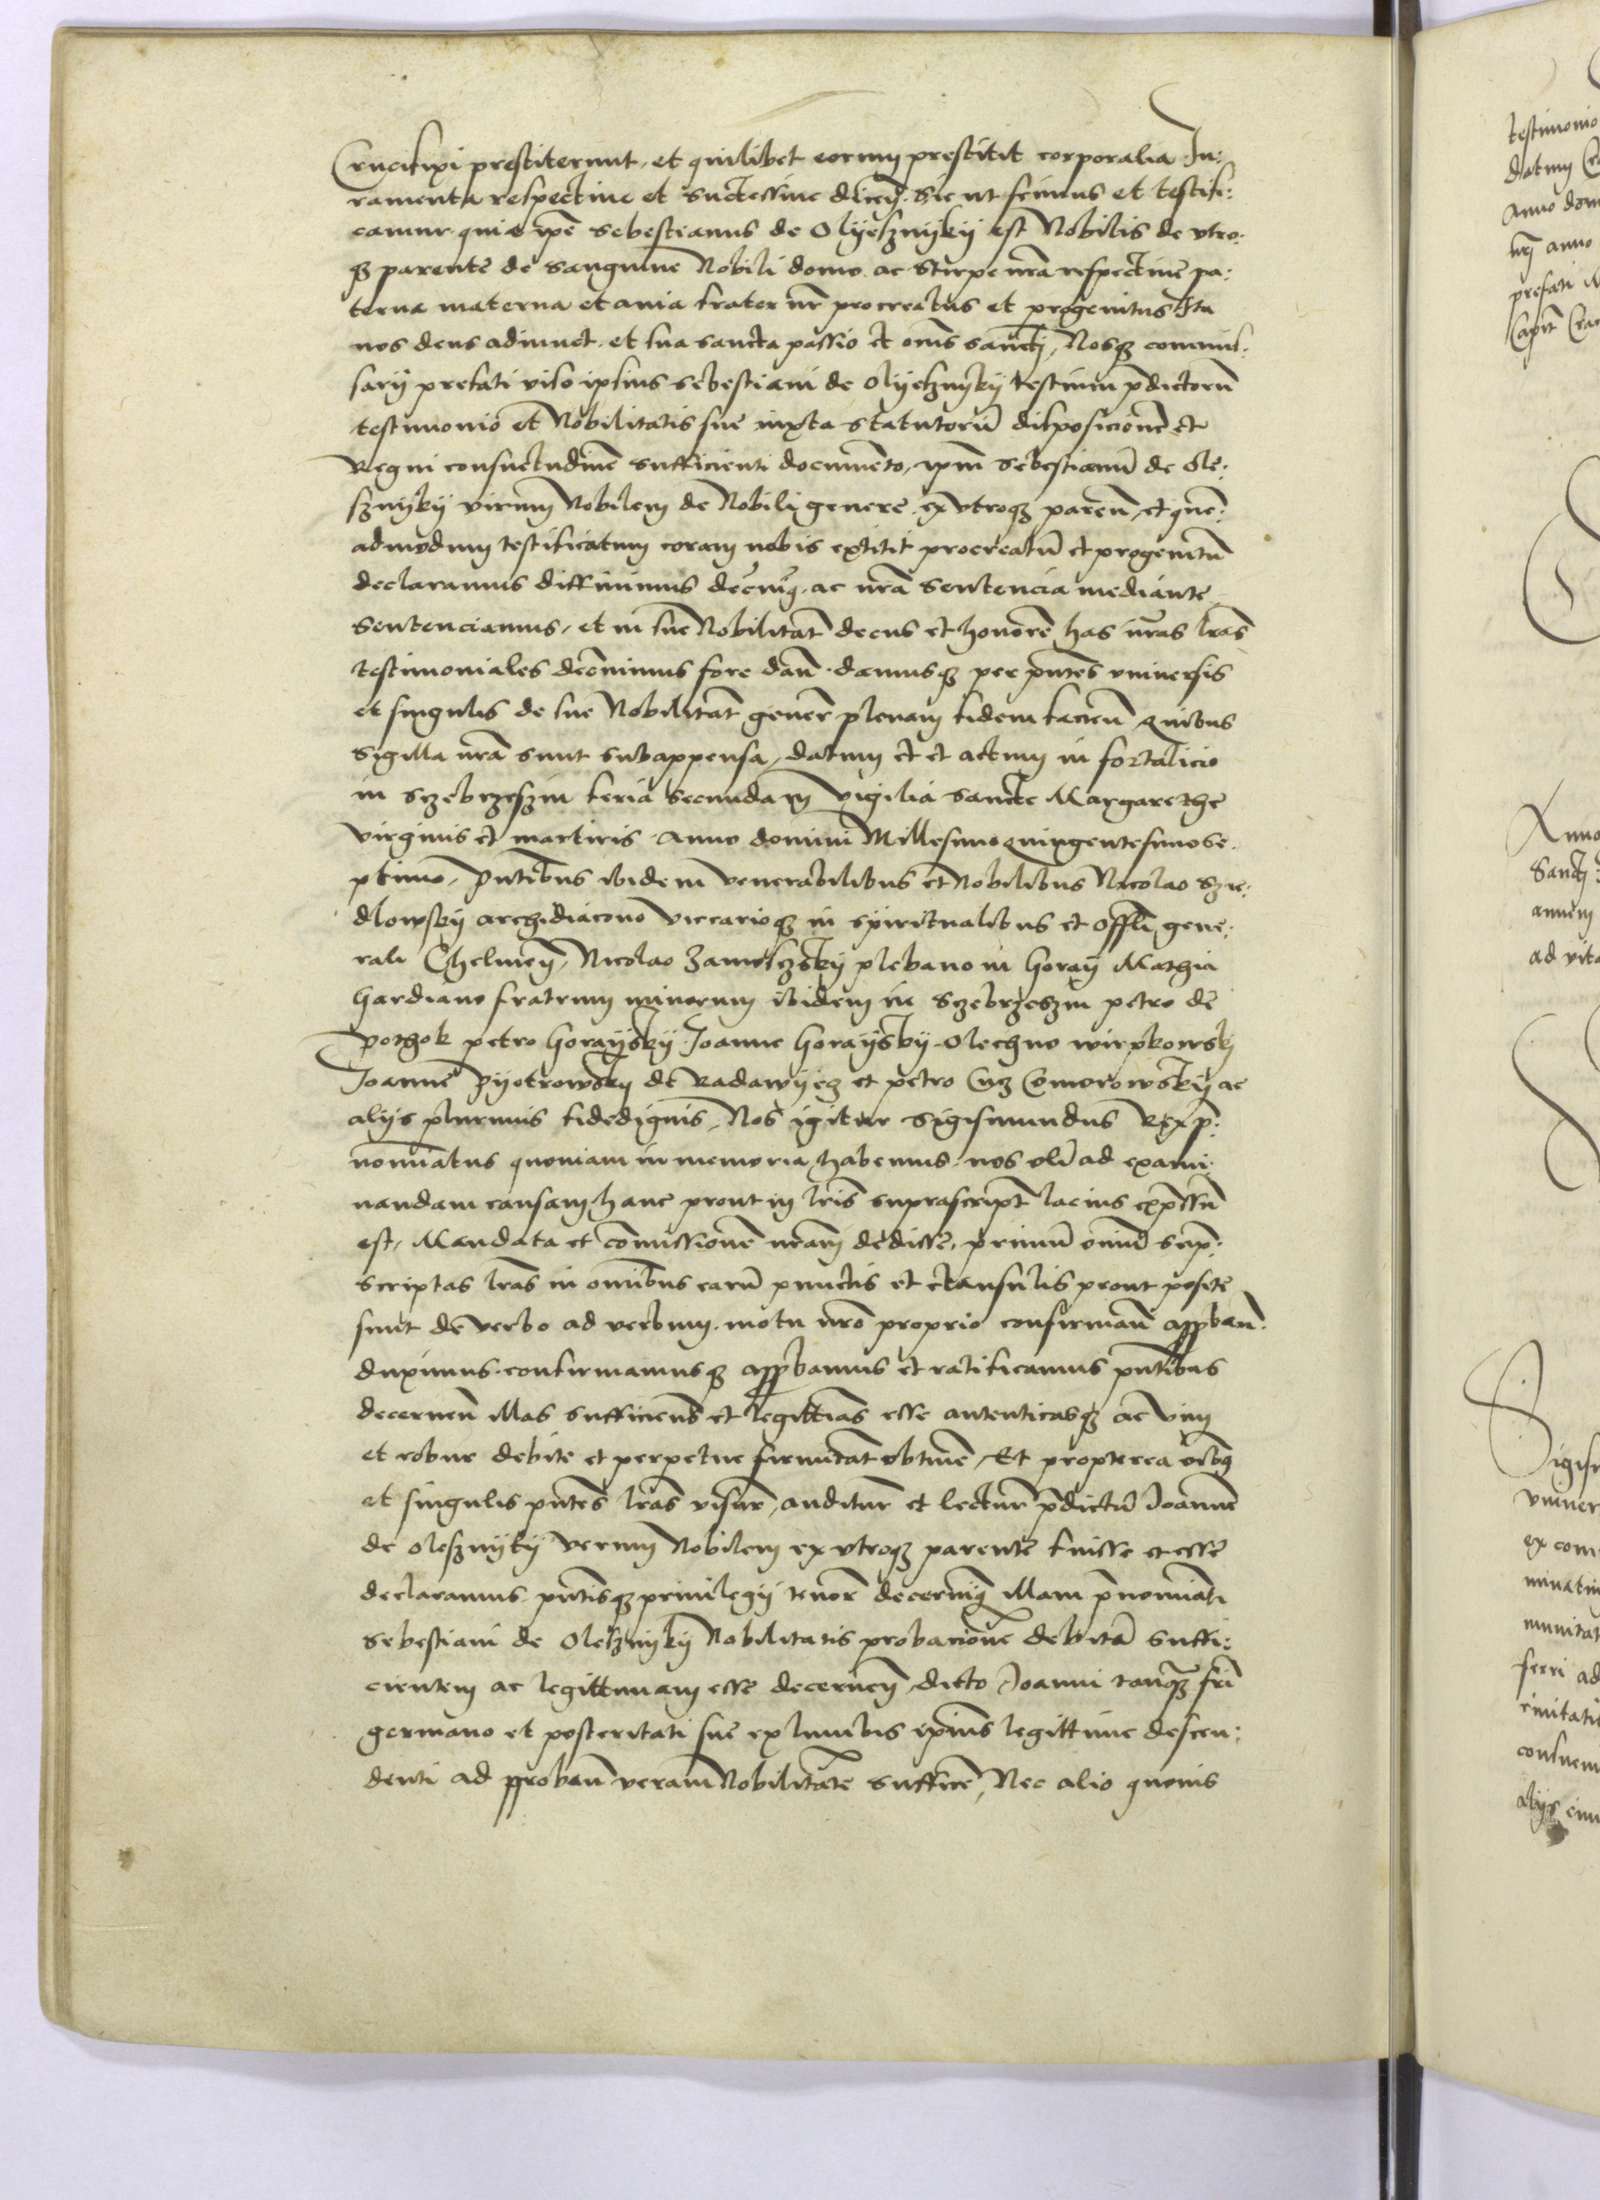 Crucifixi prestiterunt, et quilibet eorum prestitit corporalia Iu:
ramenta respective et successive dicen̄. Sic ut scimus et testifi:
camur quia ip̄e Sebestianus de Olyesznyky est Nobilis de vtro:
qȝ parente de sanguine Nobili domo ac Stirpe nr̄a respective pa:
terna materna et avia frater nr̄ procreatus et progenitus Ita
nos deus adiuvet et sua sancta passio et om̄s sancti, Nosqȝ commis:
sarij prefati viso ipsius Sebestiani de Olyesznyky testium p̄dictorū
testimonio et Nobilitatis sue iuxta statutorū disposicionē et
Regni consuetudinē sufficienti documento, ip̄m Sebestianū de Ole:
sznyky virum Nobilem de Nobili genere ex vtroqȝ paren̄ et quē:
admodum testificatum coram nobis extitit procreatū et progenitū
declaramus diffinimus decrnimꝰ ac nr̄a sentencia mediante
sentenciamus, et in sue Nobilitat̄ decus et honorē has nr̄as lr̄as
testimoniales decrnimus fore dan̄ damusqȝ per p̄ntes vniversis
et singulis de sue Nobilitat̄ gener̄ plenam fidem facien̄ Quibus
Sigilla nr̄a sunt subappensa, datum et et actum in fortalicio
in Sczebrzeszin feria secunda in vigilia sancte Margarethe
virginis et martiris Anno domini Millesimo Quingentesimo Se:
ptimo, p̄ntibus ibidem venerabilibus et Nobilibus Nicolao Sze:
dlowsky archidiacono viccarioqȝ in spiritualibus et Offl̄i gene:
rali Chelmen̄, Nicolao Zamosczsky plebano in Goray Mathia
Gardiano fratrum minorum ibidem in Sczebrzeszin petro de
pothok petro Goraysky Joanne Goraysky Olechno wirpkowsky
Joanne Pyotrowsky de Radawyecz et petro Comorowsky ac
alijs plurimis fidedignis, Nos igitur Sigismundus Rex p̄:
nominatus quoniam in memoria habemus nos oli ad exami:
nandam causam hanc prout in lr̄is suprascript̄ lacius exp̄ssū
est, Mandata et com̄issionē nr̄am dedisse, primū om̄iū sup̄:
scriptas lr̄as in om̄ibus earū punctis et clausulis prout posite
sunt de verbo ad verbum motu nr̄o proprio confirman̄ app̄ban̄
duximus confirmamusqȝ app̄bamus et ratificamus p̄ntibus
decernen̄ illas sufficientes et legittimas esse autenticasqȝ ac vim
et robur debite et perpetue firmitat̄ obtinē, Et propterea oībꝰ
et singulis p̄ntes lr̄as visur̄, auditur̄ et lectur̄ p̄dictū Joannē
de Olesznyky verum Nobilem ex vtroqȝ parente fuisse et esse
declaramus p̄ntisqȝ privilegij tenor̄ decernimꝰ illam p̄nominati
Sebestiani de Olesznyky Nobilitatis probacionē debitā suffi:
cientem ac legittimam esse decernen̄ dicto Joanni tanqȝ fr̄i
germano et posteritati sue ex lumbis ip̄ius legittime descen:
denti ad proban̄ veram Nobilitatē sufficē, Nec alio quovis
testimonio
datum Cra
Anno dom
nr̄i anno
prefati
Capit̄ Cra
Anno
Sancti
annum
ad vita
Sigism
vniver
ex com
minatim
munitat
ferri ad
civitatis
consuem
alijs civi